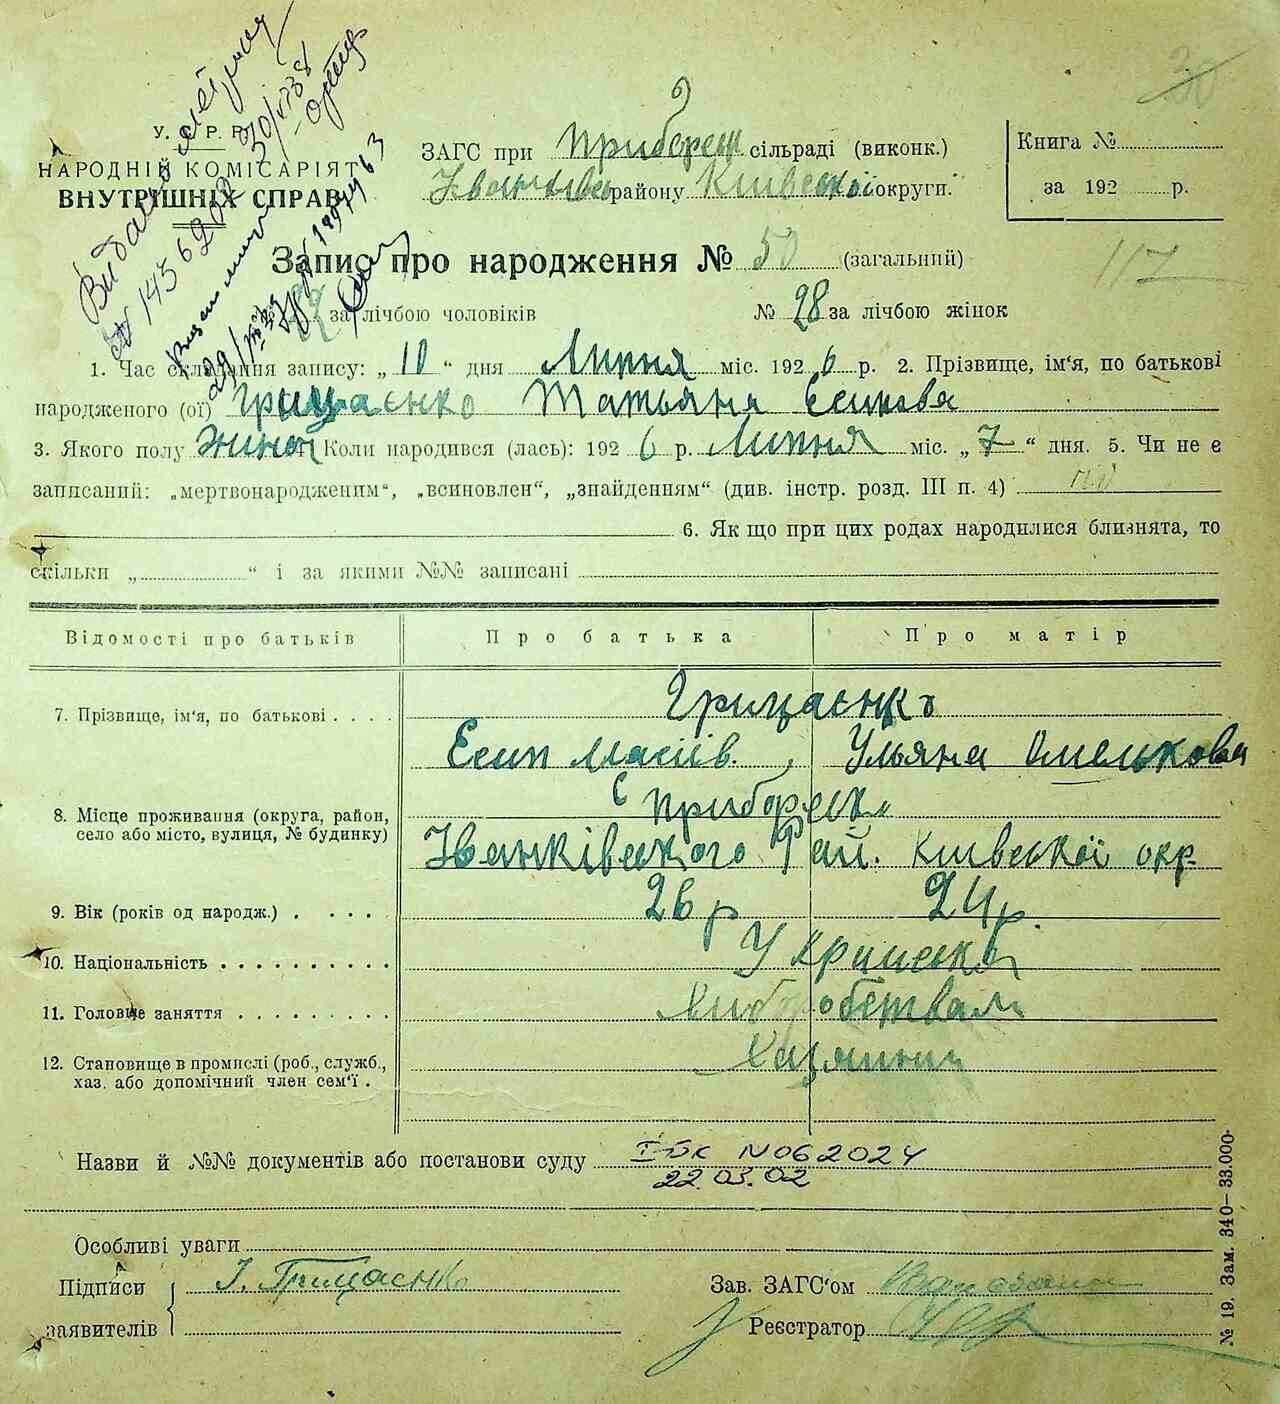 30
У. С. Р. Р.
НАРОДНІЙ КОМІСАРІЯТ
ВНУТРІШНІХ СПРАВ
ЗАГС при Приборськ сільраді (виконк.)
району Київської округи.
Книга №
за 192 р.
Запис про народження № 50 (загальний)
117
за лічбою чоловіків № 28 за лічбою жінок
1. Час складання запису: „ 10 “ дня Липня міс. 192 6 р. 2. Прізвище, ім‘я, по батькові
народженого (ої) Грицаєнко Татьяна Есипова
3. Якого полу жиноч Коли народився (лась): 192 6 р. Липня міс. „ 7 “ дня. 5. Чи не є
записаний: „мертвонародженим“, „всиновлен“, „знайденням“ (див. інстр. розд. III п. 4)
6. Як що при цих родах народилися близнята, то
скільки „ “ і за якими №№ записані
Відомості про батьків Про батька Про матір
7. Прізвище, ім‘я, по батькові Грицаєнкъ
Есип Масіів. Ульяна Омелькова
8. Місце проживання (округа, район, с Приборськ
село або місто, вулиця, № будинку) Іванківського Рай. Київської окр.
9. Вік (років од народж.) 26 р 24 р.
10. Національність Українська
11. Головне заняття Хиборобства
12. Становище в промислі (роб., служб.,
хаз. або допомічний член сем‘ї .
Назви й №№ документів або постанови суду I-БК N062024
22.03.02
Особливі уваги
Підписи І. Грицаєнко Зав. ЗАГС‘ом
заявителів Реєстратор
№ 19. Зам. 340—33.000.